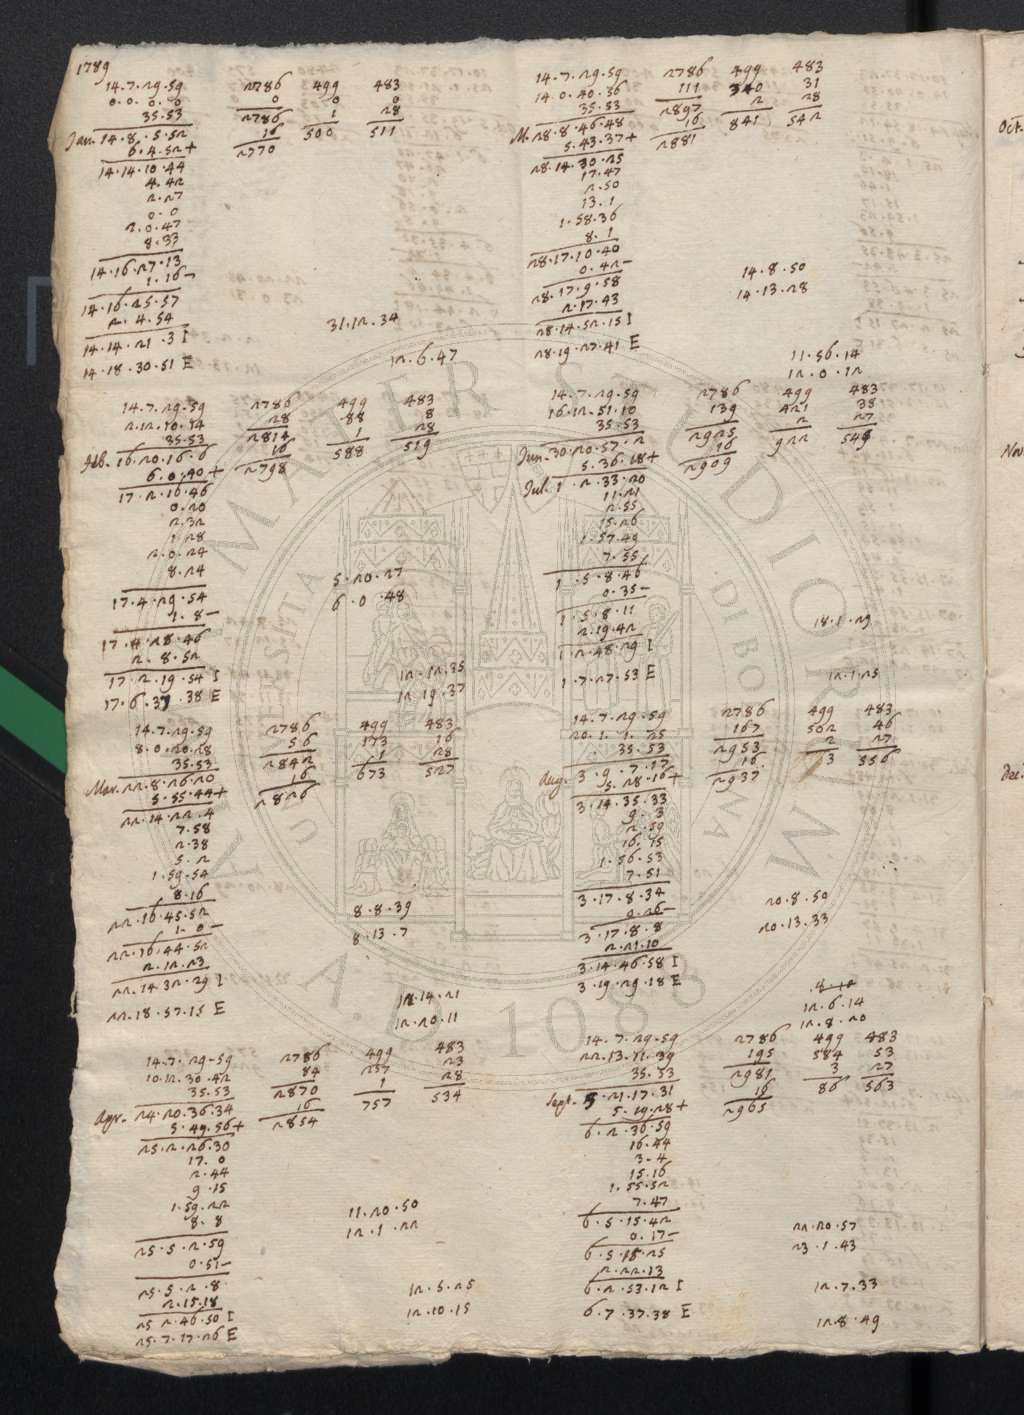 1789
14.7.29.59 2786 499 483
0.0.0.0 0 0 0
35.53 2786 1 28
Jan. 14.8.5.52 16 500 511
6.4.52+ 2770
14.14.10.44
4.42
2.27
0.0
2.0.47
8.33
14.16.27.13
1.16-
14.16.25.57
2.4.54
31.12.34
14.14.21.3 I
14.18.30.51 E
12.6.47
14.7.29.59 2786 499 483
2.12.10.14 28 88 8
35.53 2814 1 28
Feb. 16.20.16.6 16 588 519
6.0.40+ 2798
17.2.16.46
0.20
2.32
1.28
2.0.24
8.24
5.20.27
17.4.29.54
6.0.48
1.8-
17.4.28.46
2.8.52
17.2.19.54 I
12.12.35
17.6.37.38 E
12.19.37
14.7.29.59 2786 499 483
8.0.20.28 56 173 16
35.53 2842 1 28
Mar. 22.8.26.20 16 673 527
5.55.44+ 2826
22.14.22.4
7.58
2.38
5.2
1.59.54
8.16
22.16.45.52
8.8.39
1.0-
8.13.7
22.16.44.52
2.12.23
22.14.32.29 I
12.14.21
22.18.57.15 E
12.20.11
14.7.29.59 2786 499 483
10.12.30.42 84 257 23
35.53 2870 1 28
Apr. 24.20.36.34 16 757 534
5.49.56+ 2854
25.2.26.30
17.0
2.44
9.15
1.59.22
8.8
11.20.50
12.1.22
25.5.2.59
0.51-
25.5.2.8
2.15.18
12.5.25
25.2.46.50 I
12.10.15
25.7.17.26 E
14.7.29.59 2786 499 483
14.0.40.36 111 340 31
35.53 2897 2 28
M. 28.8.46.48 16 841 542
5.43.37+ 2881
28.14.30.25
17.47
2.50
13.1
1.58.36
8.1
28.17.10.40
0.42-
14.8.50
28.17.9.58
14.13.28
2.17.43
28.14.52.15 I
28.19.27.41 E
11.56.14
12.0.12
14.7.29.59 2786 499 483
16.12.51.10 139 421 38
35.53 2925 2 27
Jun. 30.20.57.2 16 922 548
5.36.18+ 2909
Jul. 1.2.33.20
11.21
2.55
15.26
1.57.49
7.55
1.5.8.46
0.35-
1.5.8.11
2.19.42
18.1.29
1.2.48.29 I
1.7.27.53 E
12.1.25
14.7.29.59 2786 499 483
20.1.1.25 167 502 46
35.53 2953 2 27
Aug. 3.9.7.17 16 3 556
5.28.16+ 2937
3.14.35.33
9.3
2.59
16.15
1.56.53
7.51
3.17.8.34
20.8.50
0.26-
3.17.8.8
20.13.33
2.21.10
3.14.46.58 I
3.19.29.18 E
12.6.14
12.8.20
14.7.29.59 2786 499 483
22.13.11.39 195 584 53
35.53 2981 3 27
Sept. 5.21.17.31 16 86 563
5.19.28+ 2965
6.2.36.59
16.44
3.4
15.16
1.55.52
7.47
6.5.15.42
22.20.57
0.17-
23.1.43
6.5.15.25
2.22.13
6.2.53.12 I
12.7.33
6.7.37.38 E
12.8.49
Oct.
Nov.
Dec.
ALMA MATER STUDIORUM
UNIVERSITA DI BOLOGNA
A.D. 1088